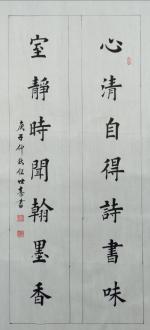 心清自得詩書味
室靜時聞翰墨香
庚子仲秋任世喜書